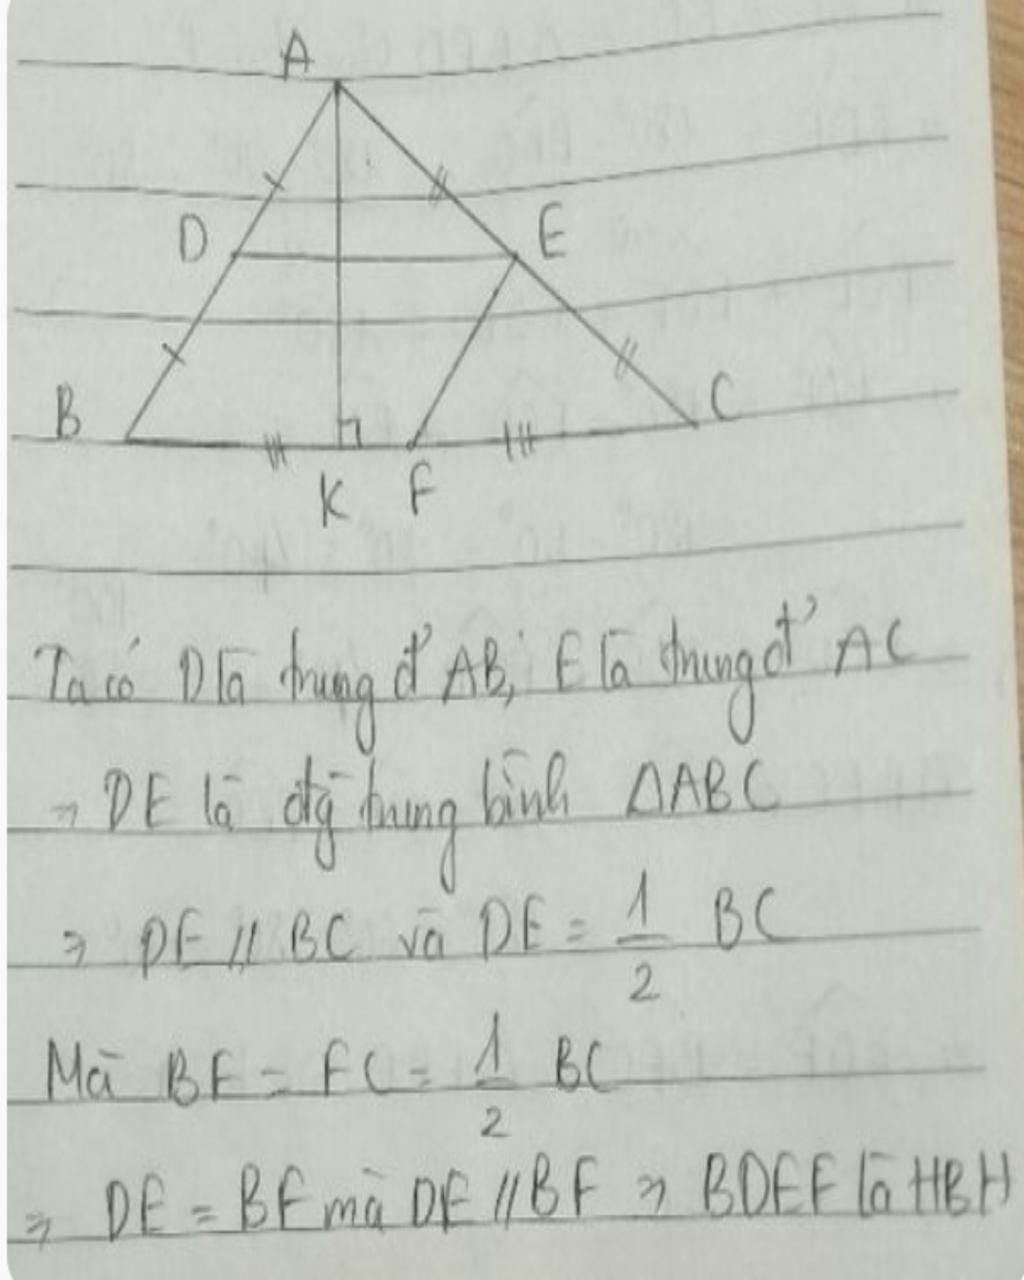 A
D
E
B
C
K F
Ta có D là trung đ' AB, E là trung đ' AC
⇒ DE là đg trung bình ΔABC
⇒ DE // BC và DE = 1/2 BC
Mà BF = FC = 1/2 BC
⇒ DE = BF mà DE // BF ⇒ BDEF là HBH